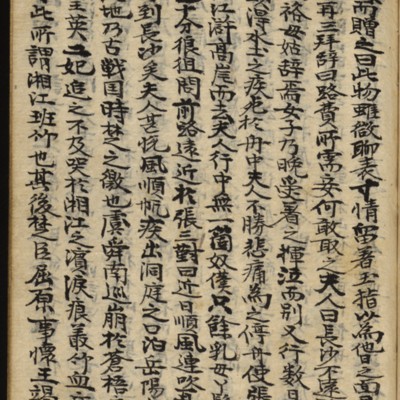 而贈之曰此物雖微聊表寸情留著玉指以爲他日之面
再三拜辭曰路費所需妾何敢取之夫人曰長沙不遠
裕毋姑辭焉女子乃著之揮泣而別又行數日
得水土之疾危於舟中夫人不勝悲痛爲之停舟使張
江滸高岸而去夫人行中無一箇奴僕只餘乳母丫鬟
十分狼狽問前路遠近於張三對曰近日順風連吹
到長沙矣夫人甚悅風順帆疾出洞庭之口泊岳陽
地乃古戦国時楚之徼也虞舜南巡崩於蒼梧
皇英二妃追之不及哭於湘江之濱淚痕叢竹血
於此所謂湘江班竹也其後楚臣屈原事懷王竭